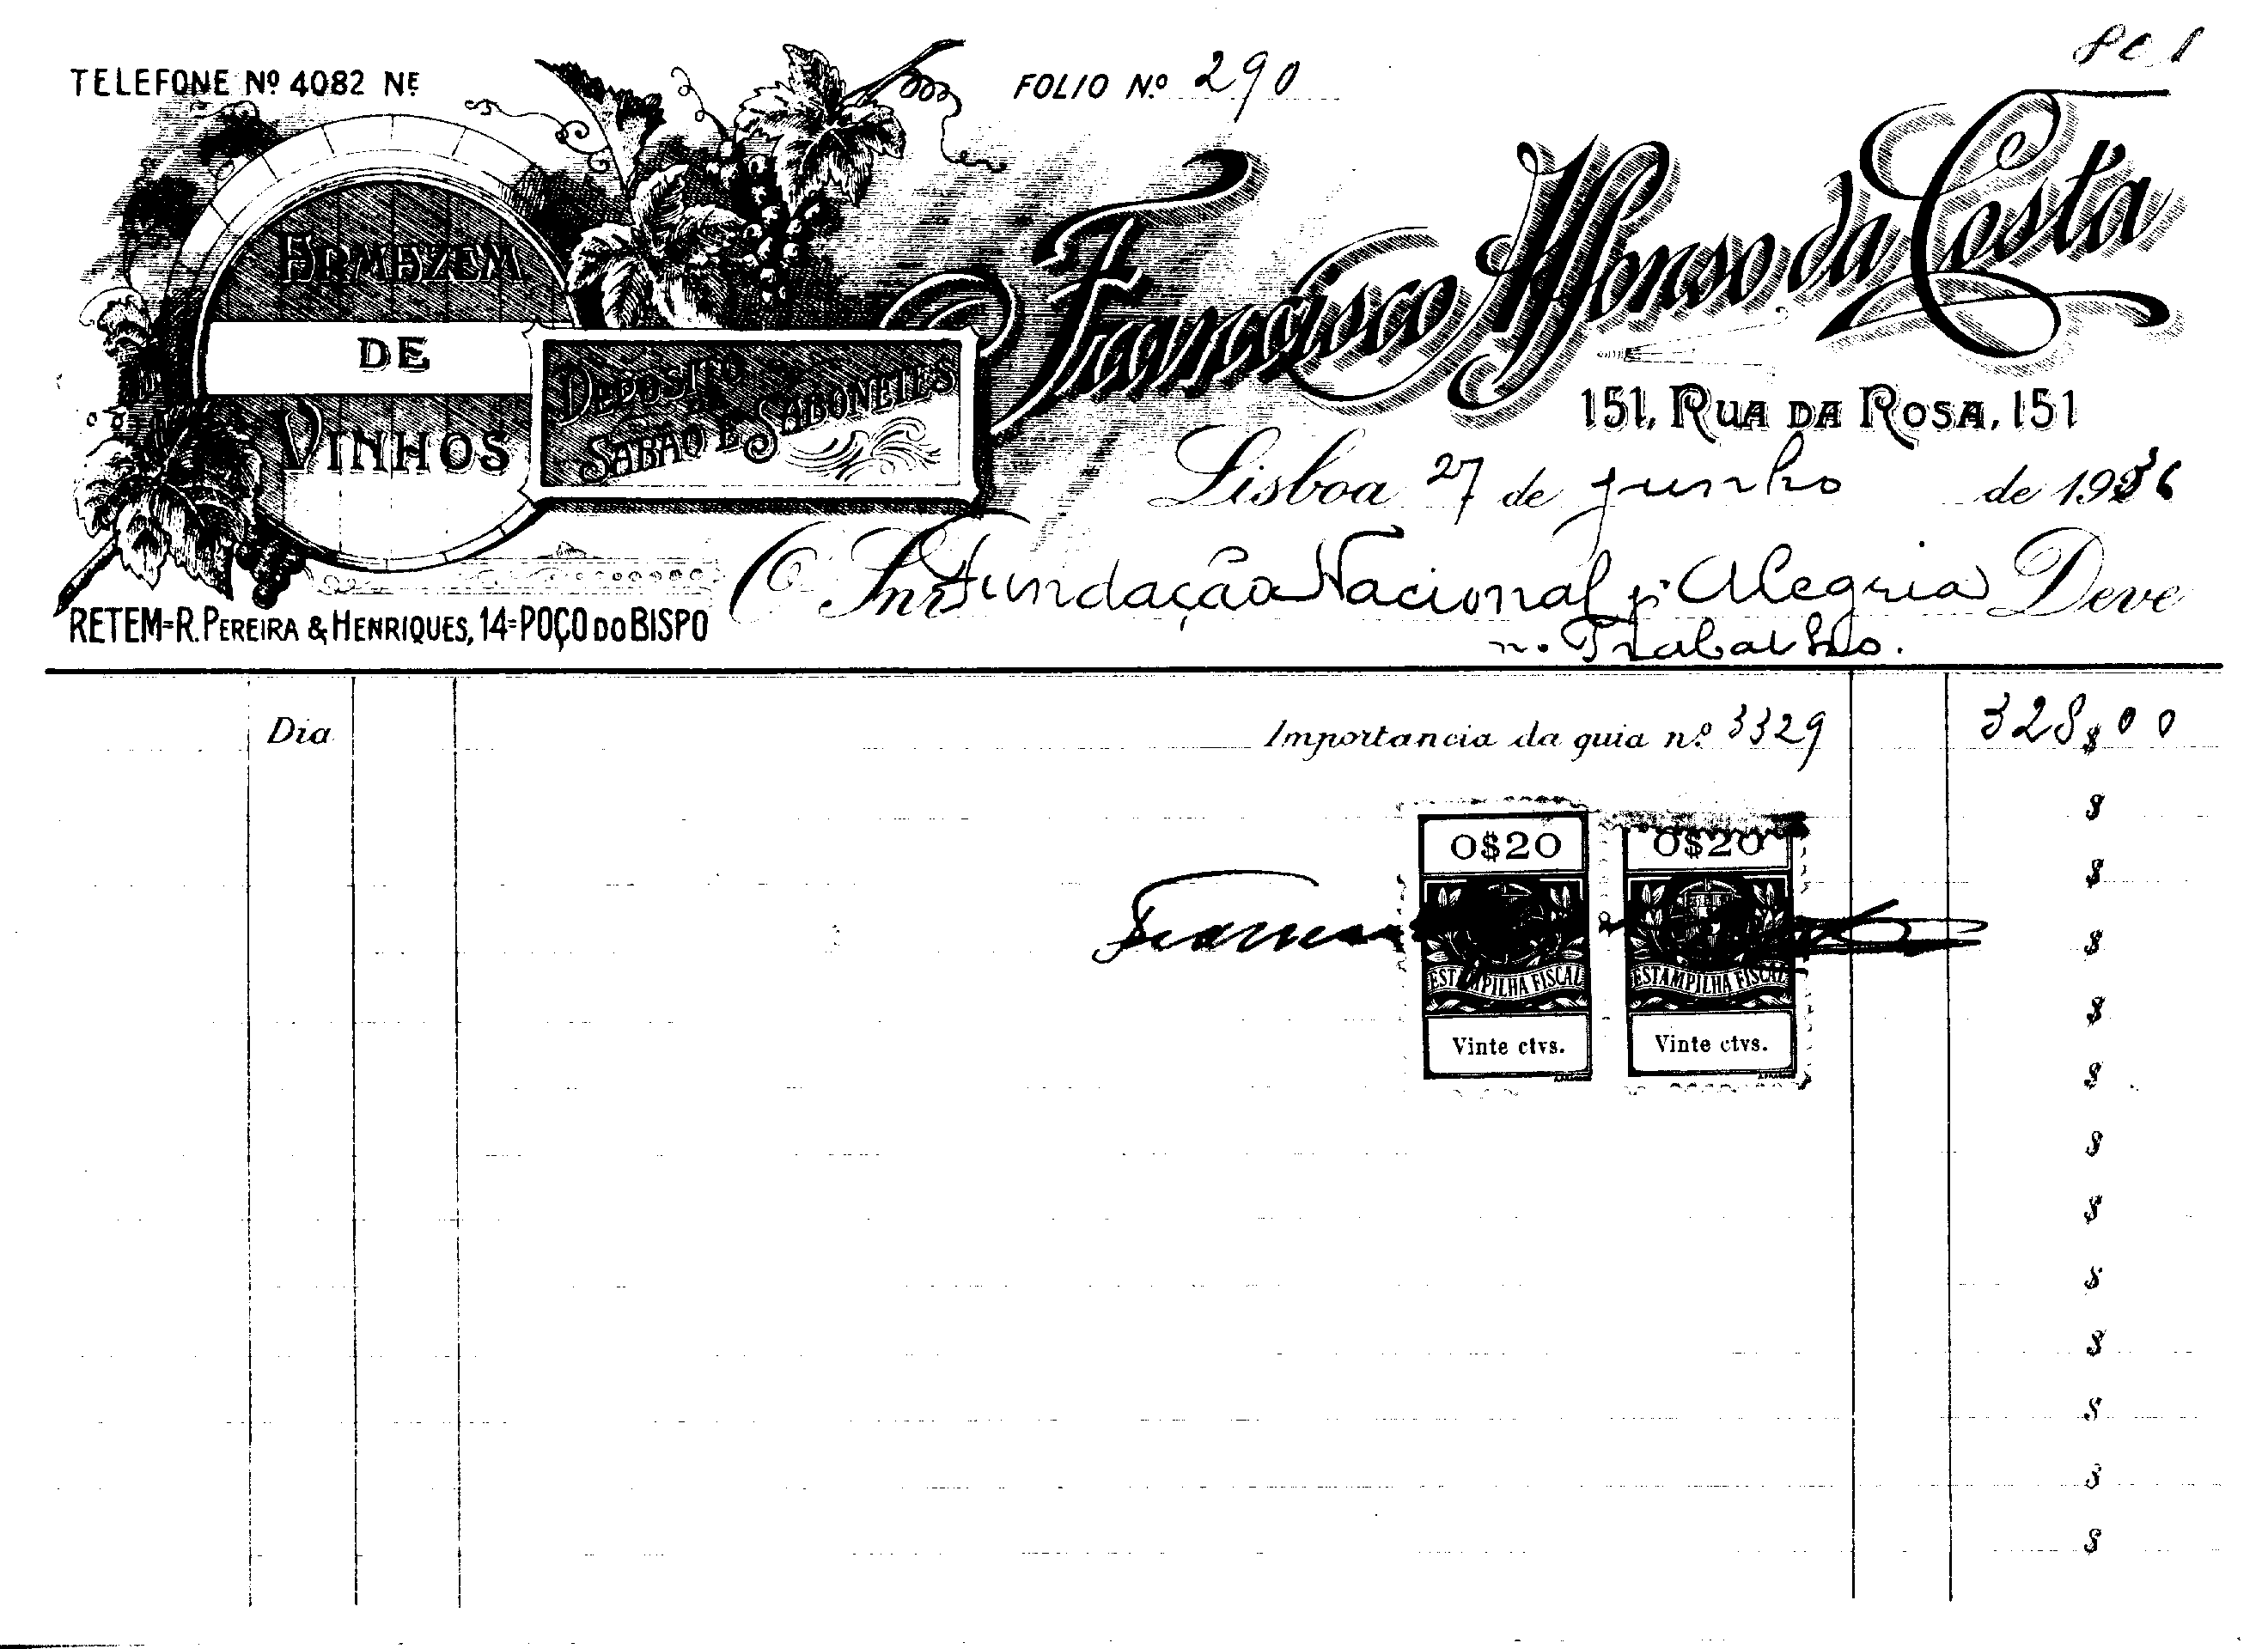 TELEFONE Nº 4082 NE
FOLIO N.º 290
ARMAZEM
DE
VINHOS
DEPOSITO
SABÃO E SABONETES
Francisco Affonso da Costa
151, RUA DA ROSA, 151
Lisboa 27 de junho de 1936
O Snr. Fundação Nacional p.ª Alegria Deve
n. Trabalho.
RETEM=R. PEREIRA & HENRIQUES, 14=POÇO DO BISPO
Dia Importancia da guia n.º 3329 328$00
$
$
$
$
$
$
$
$
$
$
$
$
0$20 0$20
ESTAMPILHA FISCAL ESTAMPILHA FISCAL
Vinte ctvs. Vinte ctvs.